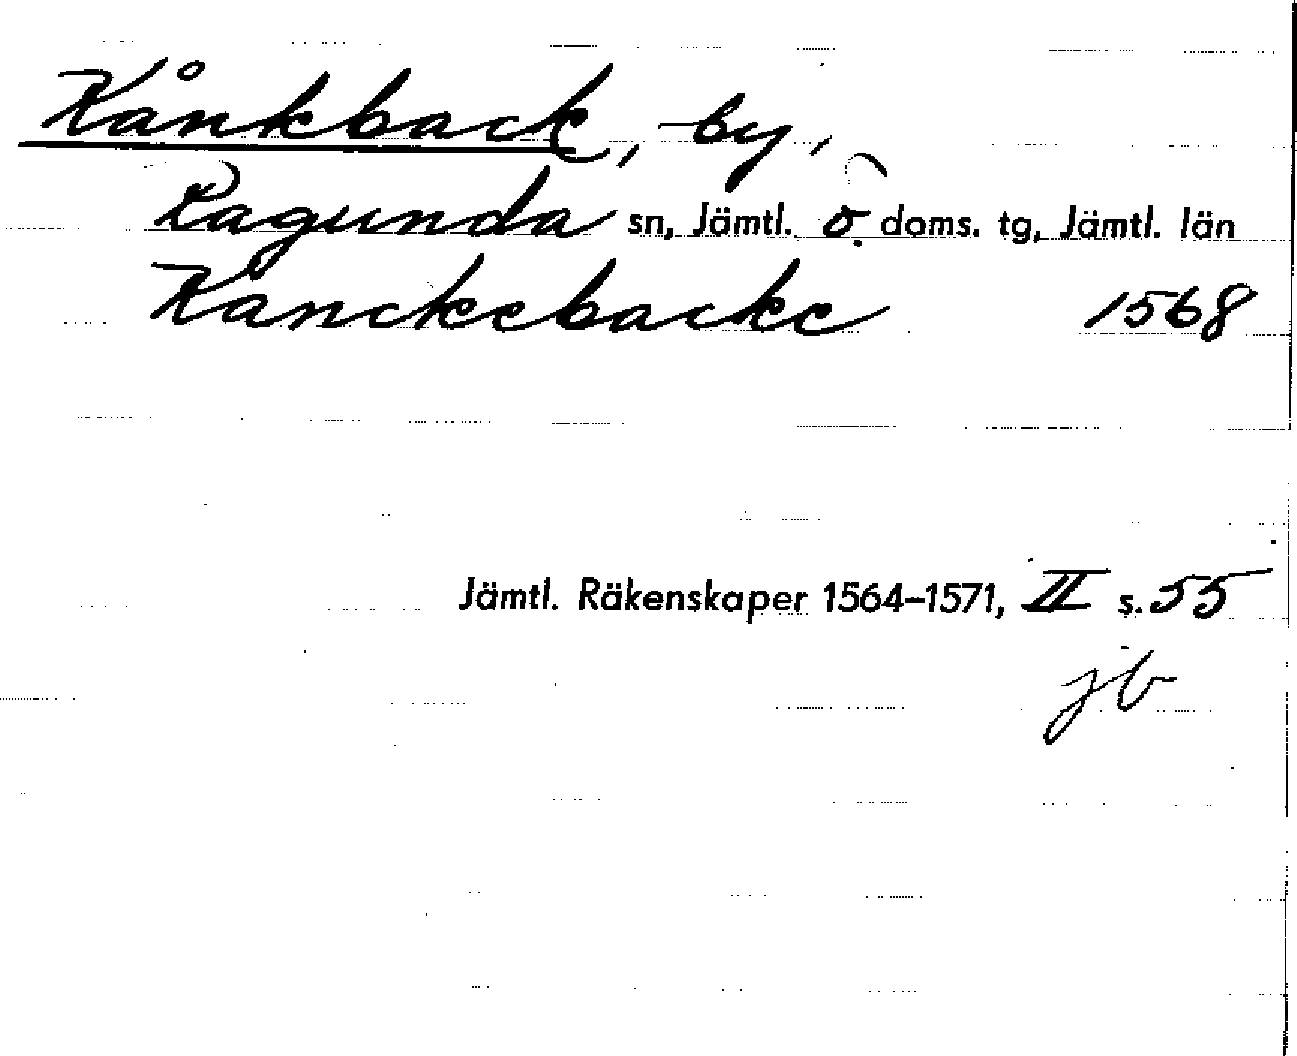 Kånkback, by,
Ragunda sn, Jämtl. ö. doms. tg, Jämtl. län
Kanckebacke 1568
Jämtl. Räkenskaper 1564-1571, II s. 55
jb